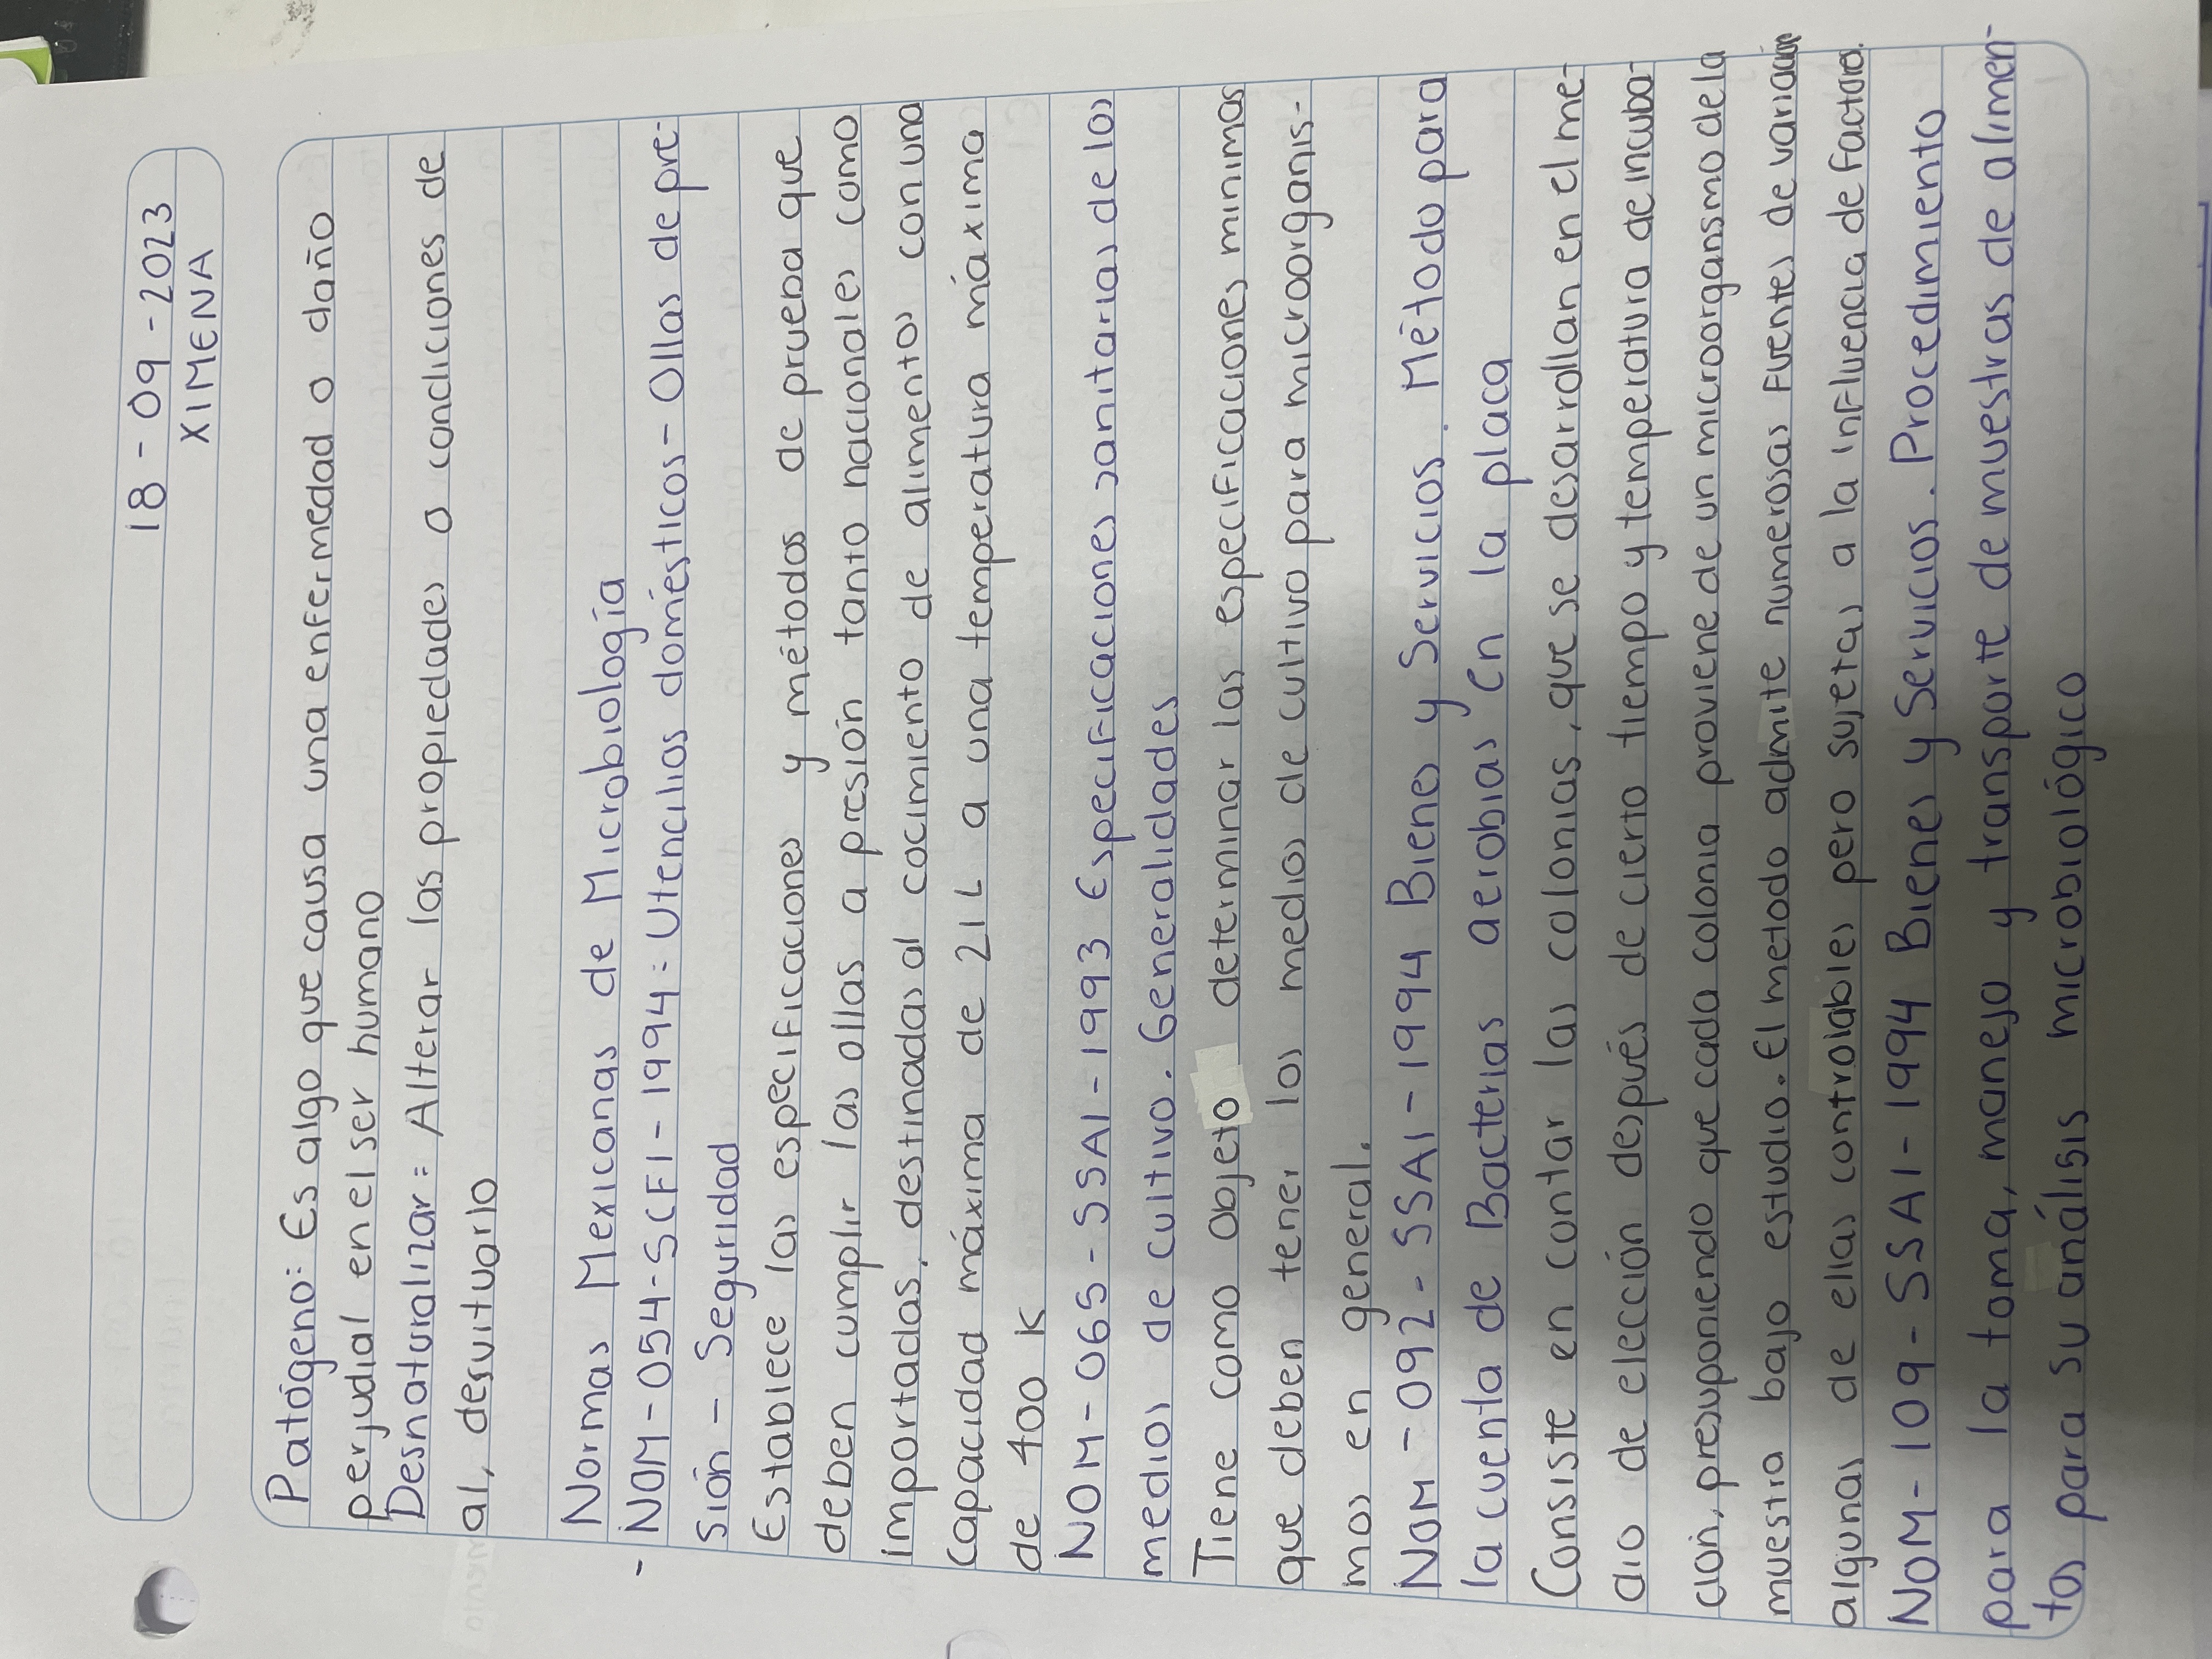 18-09-2023
XIMENA
Patógeno: Es algo que causa una enfermedad o daño
perjudial en el ser humano
Desnaturalizar: Alterar las propiedades o condiciones de
al, desvituario
Normas Mexicanas de Microbiología
- NOM-054-SCFI-1994: Utencilios domésticos- Ollas de pre-
sión - Seguridad
Establece las especificaciones y métodos de prueba que
deben cumplir las ollas a presión tanto nacionales como
importadas, destinadas al cocimiento de alimentos con una
capacidad máxima de 21L a una temperatura máxima
de 400 K
NOM-065-SSA1-1993 Especificaciones sanitarias de los
medios de cultivo. Generalidades
Tiene como objeto determinar las especificaciones minimas
que deben tener los medios de cultivo para microorganis-
mos en general.
NOM-092-SSA1-1994 Bienes y Servicios. Método para
la cuenta de Bacterias aerobias en la placa
Consiste en contar las colonias, que se desarrollan en el me-
dio de elección después de cierto tiempo y temperatura de incuba-
ción, presuponiendo que cada colonia proviene de un microorgansmo de la
muestra bajo estudio. El metodo admite numerosas fuentes de variación
algunas de ellas controlables pero sujetas a la influencia de factores.
NOM-109-SSA1-1994 Bienes y Servicios. Procedimiento
para la toma, manejo y transporte de muestras de alimen-
tos para su análisis microbiológico